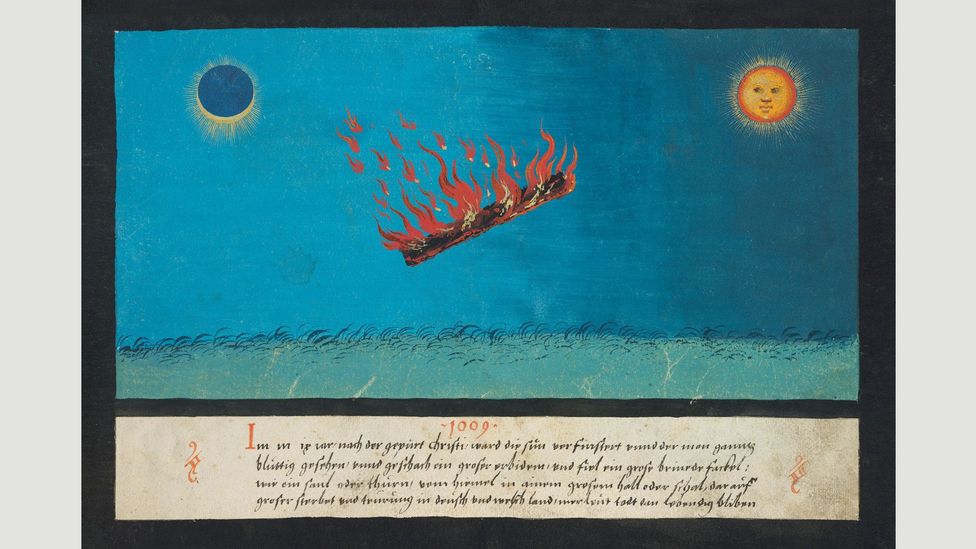 ·1009·
Im m ix iar nach der gepurt Christi, ward die sun verfinstert vnnd der mon ganntz
bluttig gesehen, vnnd geschach ein groser erbidem, vnd fiel ein grose brinede fackel:
wie ein saul oder thurn, vom himel in ainem grosem hall oder schal, darauf
groser sterbet vnd teurung in deutsch vnd welsch land, mer leut todt dan lebendig bliben